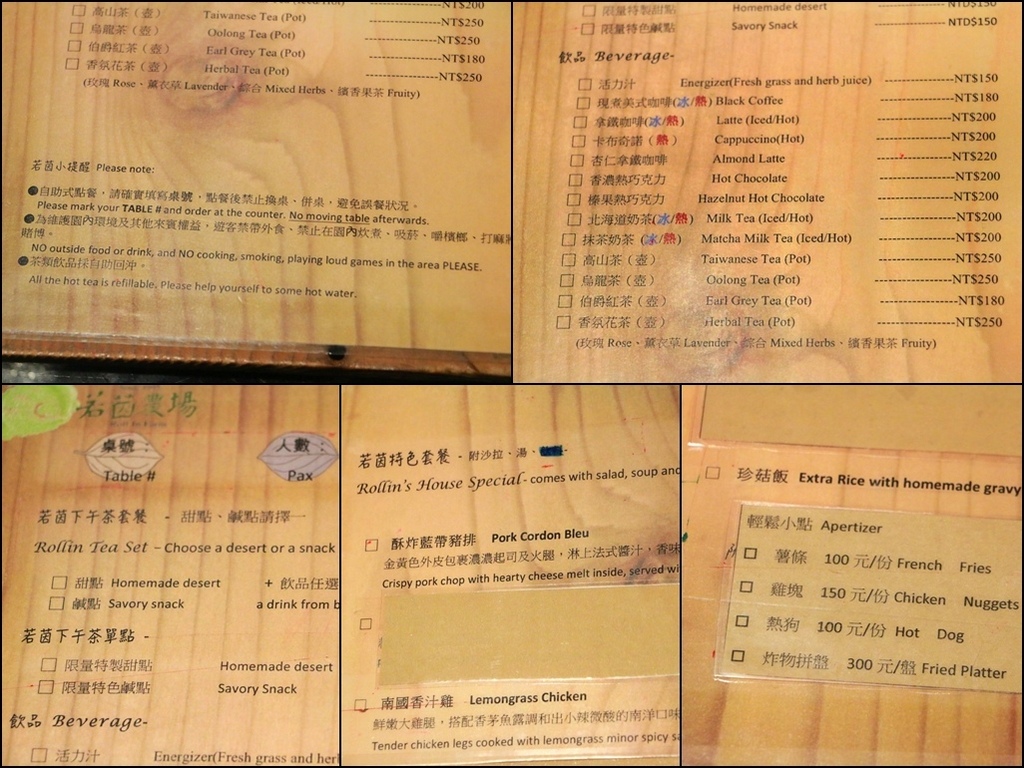 NT$200
高山茶（壺） Taiwanese Tea (Pot) NT$250
烏龍茶（壺） Oolong Tea (Pot) NT$250
伯爵紅茶（壺） Earl Grey Tea (Pot) NT$180
香氛花茶（壺） Herbal Tea (Pot) NT$250
(玫瑰 Rose、薰衣草 Lavender、綜合 Mixed Herbs、繽香果茶 Fruity)
若茵小提醒 Please note:
●自助式點餐，請確實填寫桌號，點餐後禁止換桌、併桌，避免誤餐狀況。
Please mark your TABLE # and order at the counter. No moving table afterwards.
●為維護園內環境及其他來賓權益，遊客禁帶外食、禁止在園內炊煮、吸菸、嚼檳榔、打麻將
賭博。
NO outside food or drink, and NO cooking, smoking, playing loud games in the area PLEASE.
●茶類飲品採自助回沖。
All the hot tea is refillable. Please help yourself to some hot water.
限量特製甜點 Homemade desert NTD$150
限量特色鹹點 Savory Snack NTD$150
飲品 Beverage-
活力汁 Energizer(Fresh grass and herb juice) NT$150
現煮美式咖啡(冰/熱) Black Coffee NT$180
拿鐵咖啡(冰/熱) Latte (Iced/Hot) NT$200
卡布奇諾（熱） Cappuccino(Hot) NT$200
杏仁拿鐵咖啡 Almond Latte NT$220
香濃熱巧克力 Hot Chocolate NT$200
榛果熱巧克力 Hazelnut Hot Chocolate NT$200
北海道奶茶(冰/熱) Milk Tea (Iced/Hot) NT$200
抹茶奶茶 (冰/熱) Matcha Milk Tea (Iced/Hot) NT$200
高山茶（壺） Taiwanese Tea (Pot) NT$250
烏龍茶（壺） Oolong Tea (Pot) NT$250
伯爵紅茶（壺） Earl Grey Tea (Pot) NT$180
香氛花茶（壺） Herbal Tea (Pot) NT$250
(玫瑰 Rose、薰衣草 Lavender、綜合 Mixed Herbs、繽香果茶 Fruity)
若茵農場
桌號： 人數：
Table # Pax
若茵下午茶套餐 - 甜點、鹹點請擇一
Rollin Tea Set – Choose a desert or a snack
甜點 Homemade desert + 飲品任選
鹹點 Savory snack a drink from b
若茵下午茶單點 -
限量特製甜點 Homemade desert
限量特色鹹點 Savory Snack
飲品 Beverage-
活力汁 Energizer(Fresh grass and her
若茵特色套餐 - 附沙拉、湯、
Rollin's House Special- comes with salad, soup and
酥炸藍帶豬排 Pork Cordon Bleu
金黃色外皮包裹濃濃起司及火腿，淋上法式醬汁，香味
Crispy pork chop with hearty cheese melt inside, served wi
南國香汁雞 Lemongrass Chicken
鮮嫩大雞腿，搭配香茅魚露調和出小辣微酸的南洋口味
Tender chicken legs cooked with lemongrass minor spicy sa
珍菇飯 Extra Rice with homemade gravy
輕鬆小點 Apertizer
薯條 100 元/份 French Fries
雞塊 150 元/份 Chicken Nuggets
熱狗 100 元/份 Hot Dog
炸物拼盤 300 元/盤 Fried Platter